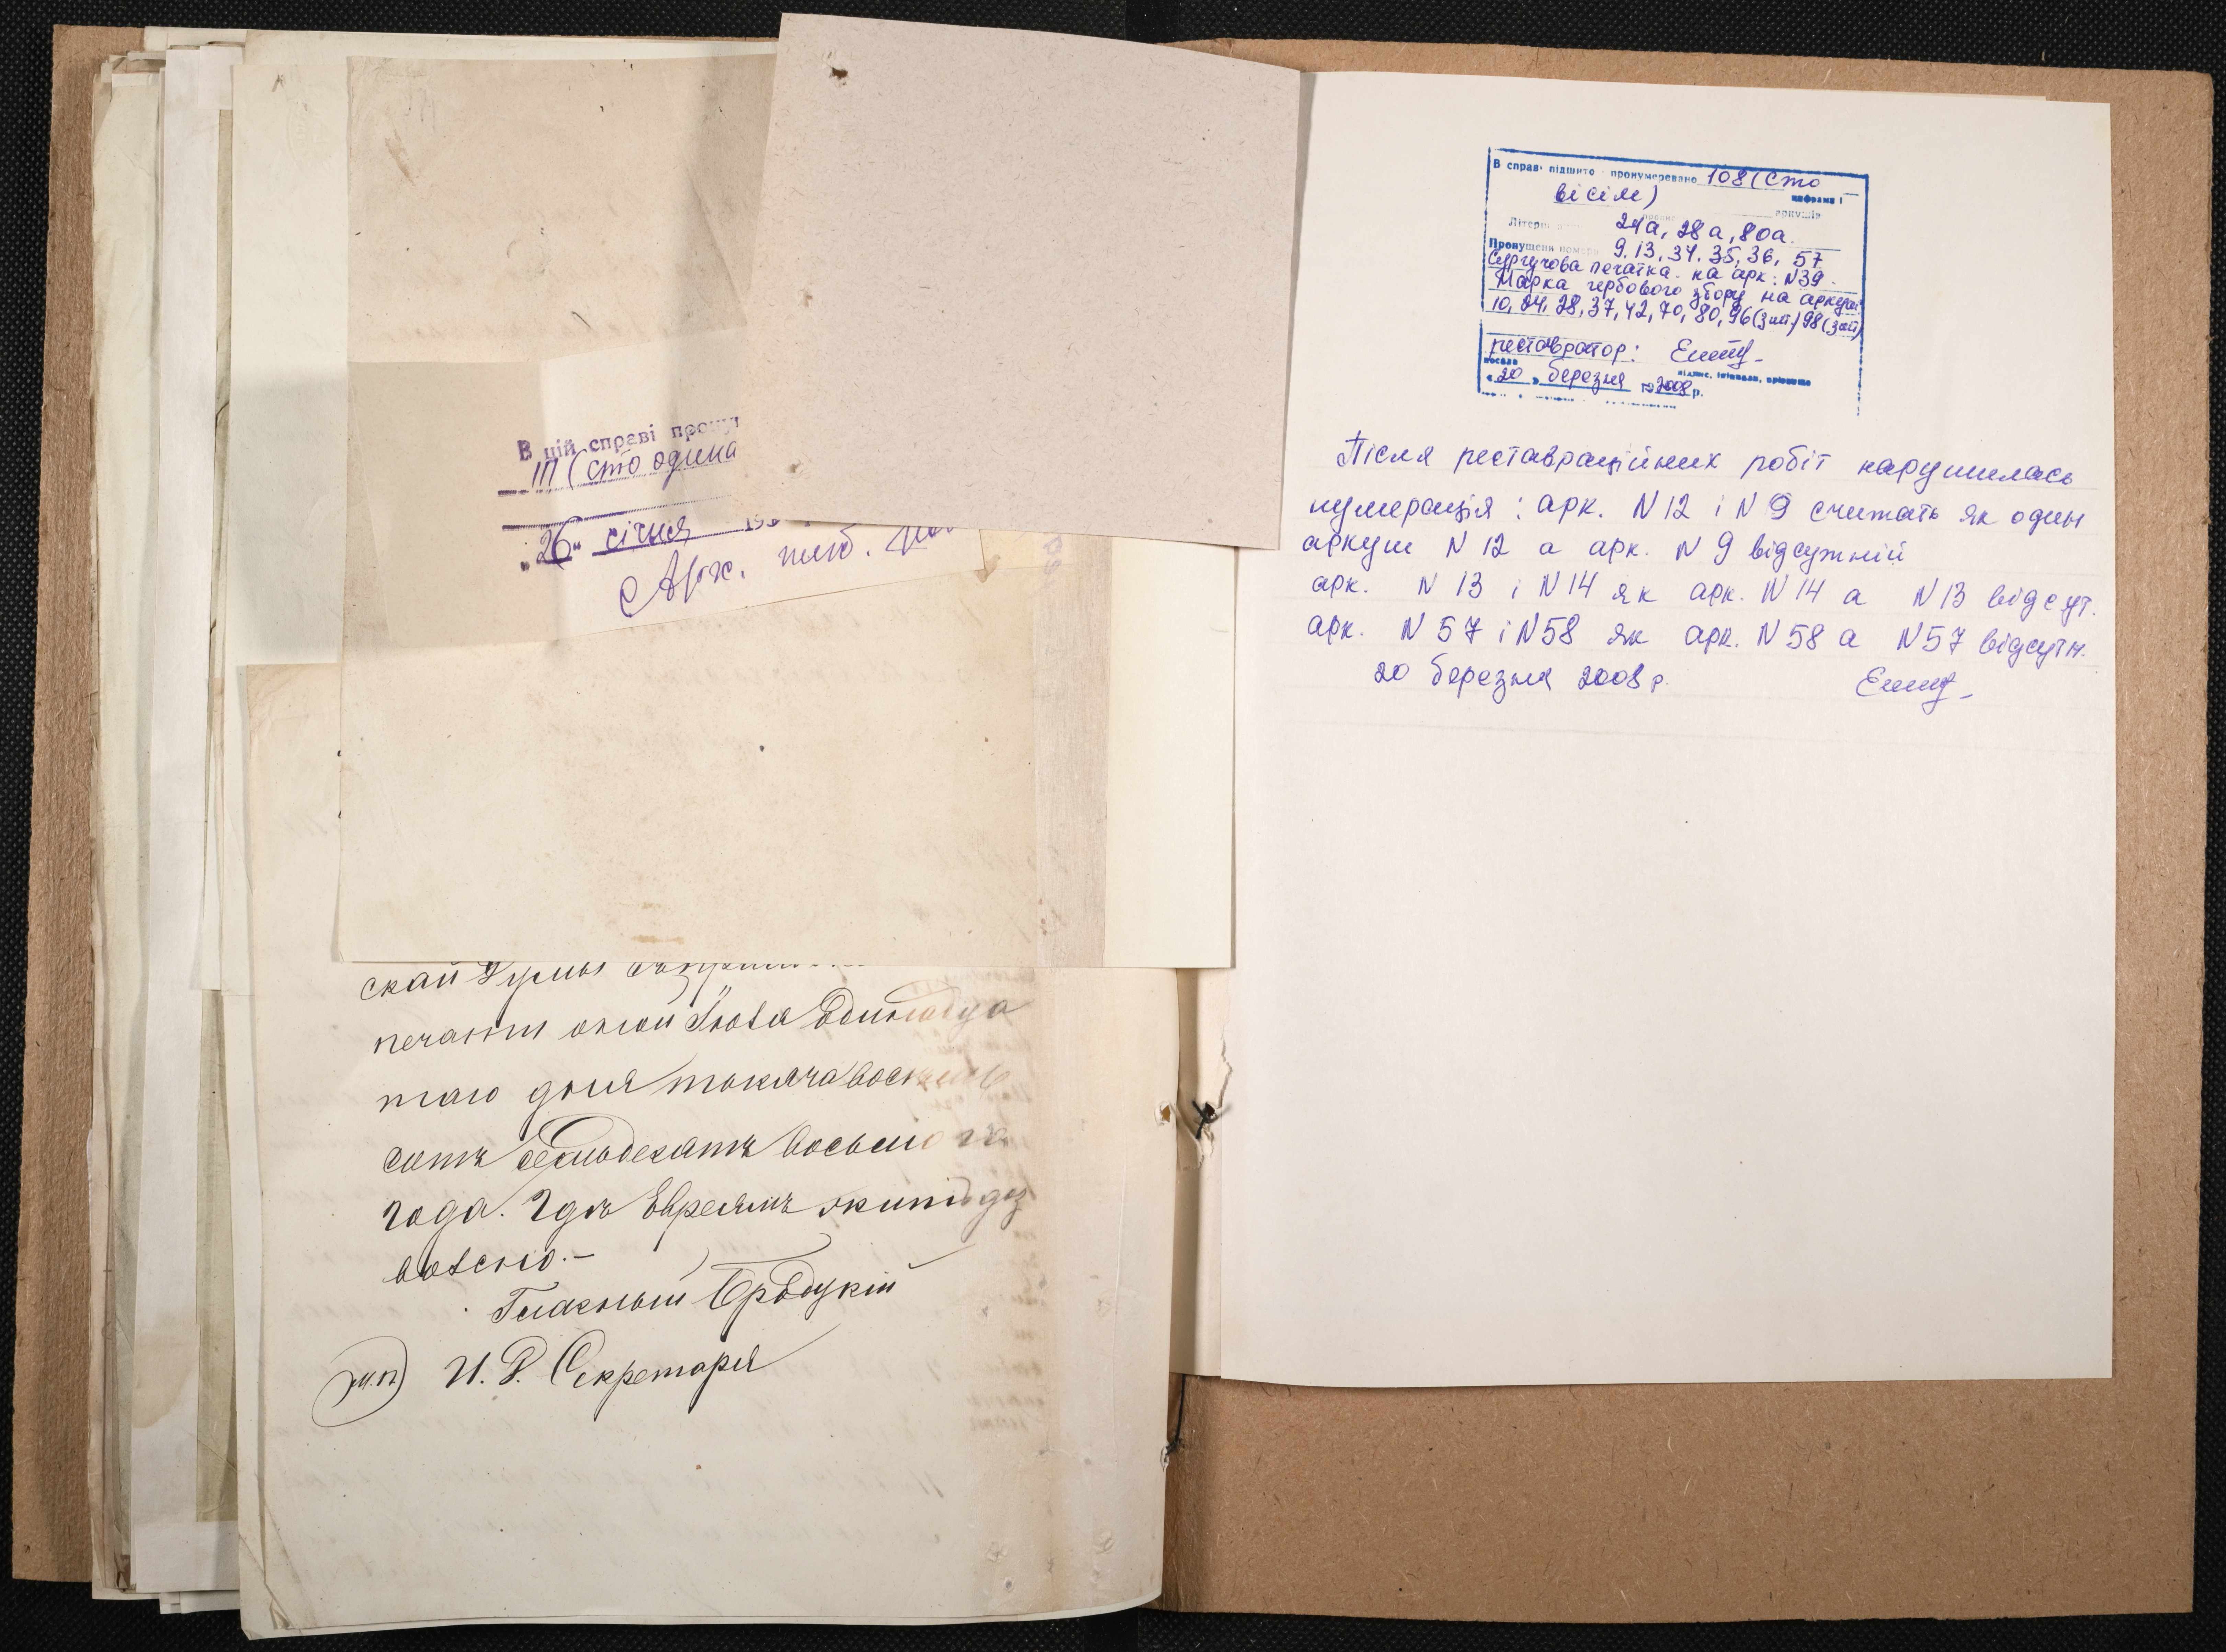 В цій справі
111 (сто одина
26 січня
Арх.
ской Думы
печати оной Іюля
таго дня тысяча восемь
сотъ семьдесятъ восьмого
года. Гдѣ Евреямъ жительство
дозволено.-
Гласный
(М.П.) И. Д. Секретаря
В справі підшито і пронумеровано 108 (сто
вісім)
цифрами і
аркушів
Літерні 24а, 28а, 80а.
Пропущені номери 9, 13, 34, 35, 36, 57
Сургучова печатка на арк: N39.
Марка гербового збору на аркуші
10, 24, 28, 37, 42, 70, 80, 96 (3 шт.) 98 (3 шт)
реставратор:
посада
підпис, ініціали, прізвище
"20" березня 2008 р.
Після реставраційних робіт нарушилась
нумерація: арк. N 12 і N 9 считать як один
аркуш N 12 а арк. N 9 відсутній
арк. N 13 і N 14 як арк. N 14 а N 13 відсут.
арк. N 57 і N 58 як арк. N 58 а N 57 відсутн.
20 березня 2008 р.